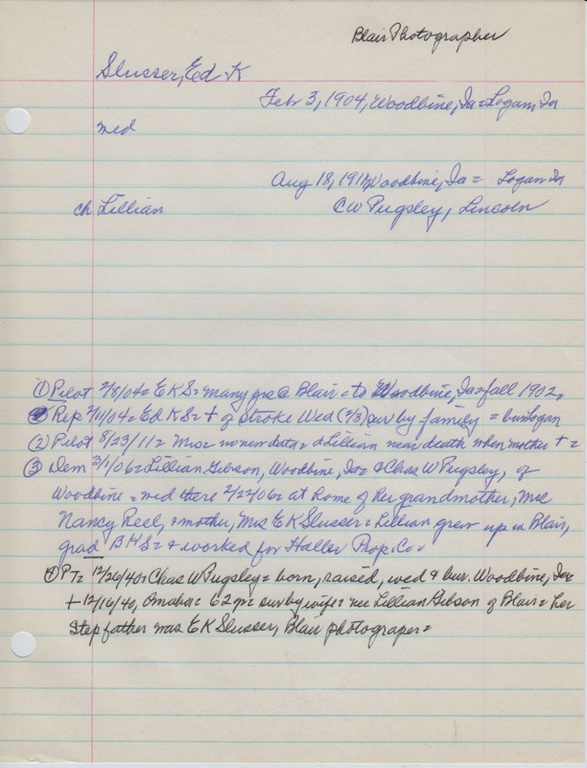 Blair Photographer
Slusser, Ed K
Febr 3, 1904, Woodbine, Ia = Logan, Ia
wed
Aug 18, 1911, Woodbine, Ia = Logan Ia
ch Lillian
CW Pugsley, Lincoln
① Pilot 2/8/04 = EKS = many yrs @ Blair = to Woodbine, Ia = fall 1902,
Rep 2/11/04 = Ed KS = + of stroke Wed (2/3) sur by family = bur Logan
(2) Pilot 8/23/11 = Mrs = no new data = d Lillian near death when mother + =
③ Dem 3/1/06 = Lillian Gibson, Woodbine, Ia = & Chas W Pugsley, of
Woodbine = wed there 2/22/06 = at home of her grandmother, Mrs
Nancy Reel, + mother, Mrs EK Slusser = Lillian grew up in Blair,
grad BHS = + worked for Haller Prop. Co =
PT = 12/26/40 = Chas W Pugsley = born, raised, wed & bur. Woodbine, Ia =
+ 12/16/40, Omaha = 62 = sur by wife = nee Lillian Gibson of Blair = her
Stepfather was EK Slusser, Blair photograper =